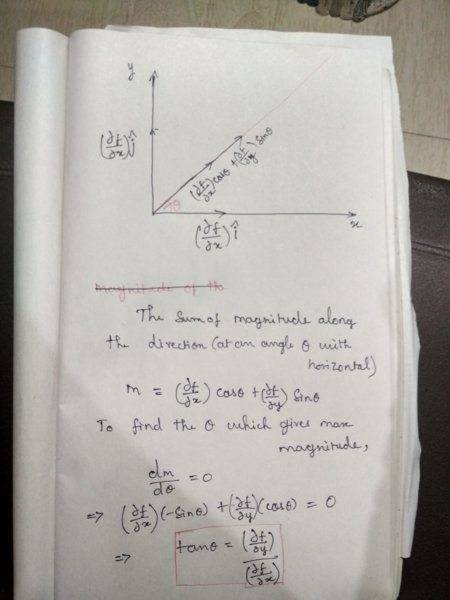 y
(∂f/∂x) ĵ
(∂f/∂x) cosθ + (∂f/∂y) sinθ
θ
x
(∂f/∂x) î
Magnitude of the
The sum of magnitude along
the direction (at an angle θ with
horizontal)
m = (∂f/∂x) cosθ + (∂f/∂y) Sinθ
To find the θ which gives max
magnitude,
dm/dθ = 0
=> (∂f/∂x) (-Sinθ) + (∂f/∂y) (cosθ) = 0
=> tanθ = (∂f/∂y) / (∂f/∂x)